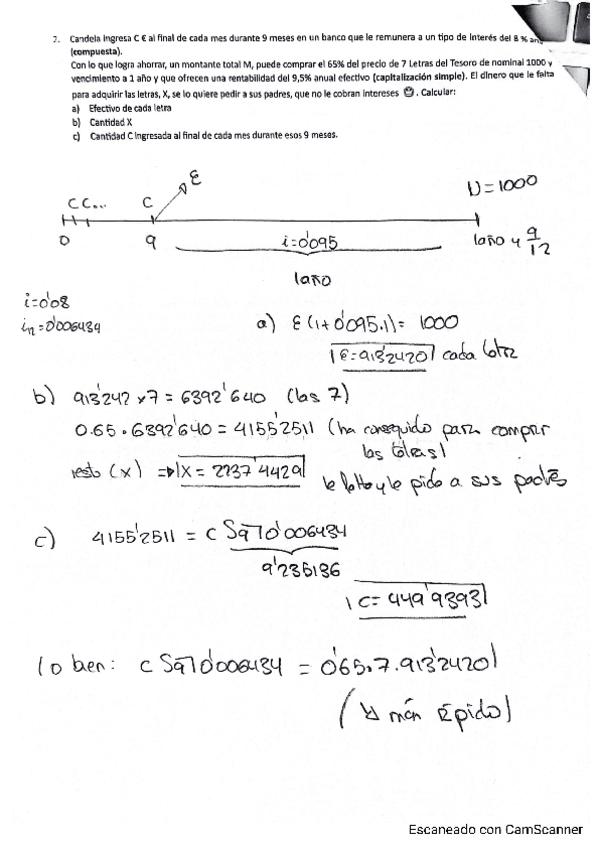 7. Candela ingresa C € al final de cada mes durante 9 meses en un banco que le remunera a un tipo de interés del 8 %
(compuesta).
Con lo que logra ahorrar, un montante total M, puede comprar el 65% del precio de 7 Letras del Tesoro de nominal 1000 y
vencimiento a 1 año y que ofrecen una rentabilidad del 9,5% anual efectivo (capitalización simple). El dinero que le falta
para adquirir las letras, X, se lo quiere pedir a sus padres, que no le cobran intereses 😊. Calcular:
a) Efectivo de cada letra
b) Cantidad X
c) Cantidad C ingresada al final de cada mes durante esos 9 meses.
CC... C E N=1000
0 9 i=0'095 1año y 9/12
1año
i=0'08
i12=0'006434
a) E(1+0'095·1)= 1000
E=913'2420 cada letra
b) 913'242 x7 = 6392'640 (las 7)
0.65 · 6392'640 = 4155'2511 (ha conseguido para comprar
las letras)
resto (x) => X = 2237'4429 le falta y le pide a sus padres
c) 4155'2511 = C S9̅|0'006434
9'235136
C= 449'9393
(o bien: C S9̅|0'006434 = 0'65·7·913'2420)
(↳ más rápido)
Escaneado con CamScanner